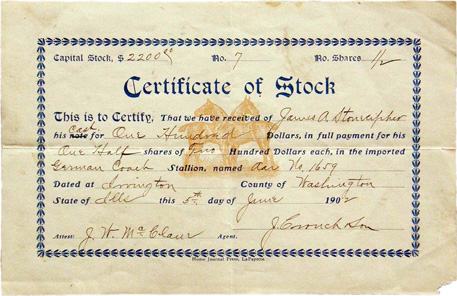 Capital Stock, $ 2200 00 No. 7 No. Shares 1/2
Certificate of Stock
This is to Certify, That we have received of James A Stonecipher
his cash note for One Hundred Dollars, in full payment for his
One Half shares of Two Hundred Dollars each, in the imported
German Coach Stallion, named Aar No. 1659
Dated at Irvington County of Washington
State of Ills this 5th day of June 1902
Attest: J. W. McClair Agent. J. Crouch & Son
Home Journal Press, LaFayette